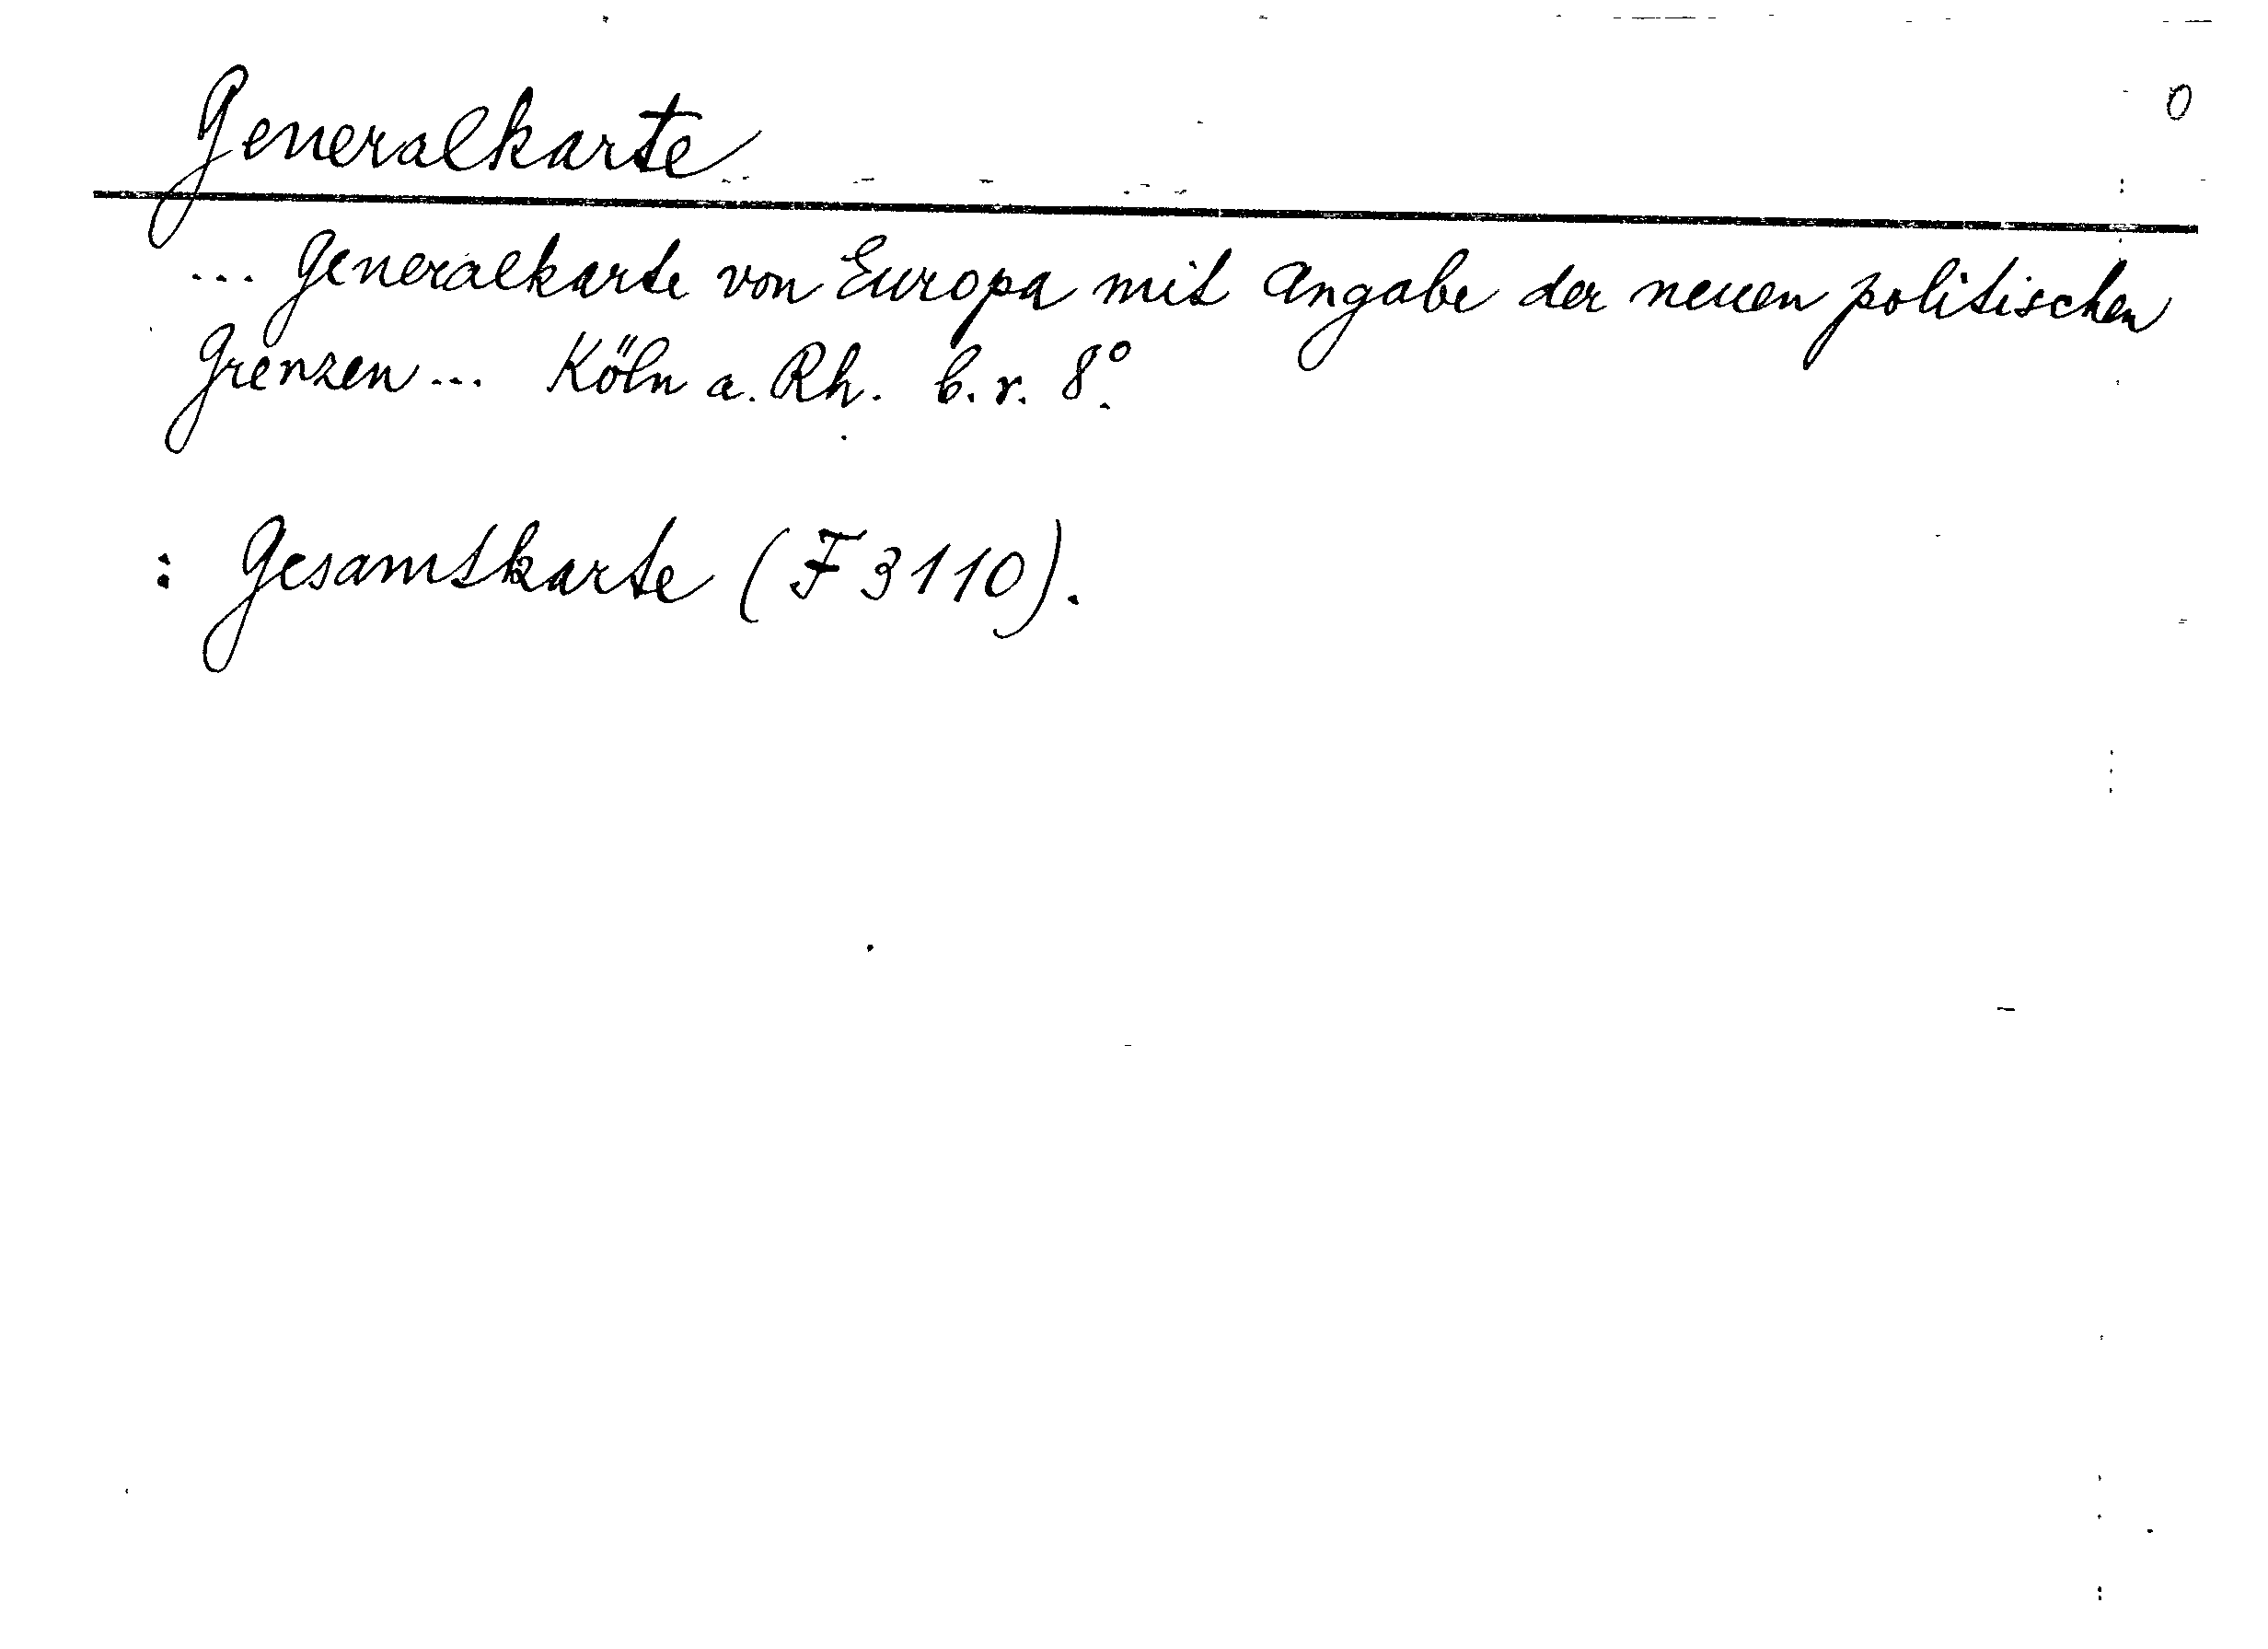 0
Generalkarte
... Generalkarte von Europa mit Angabe der neuen politischen
Grenzen... Köln a. Rh. b.r. 8°.
: Gesamtkarte (F 3110).